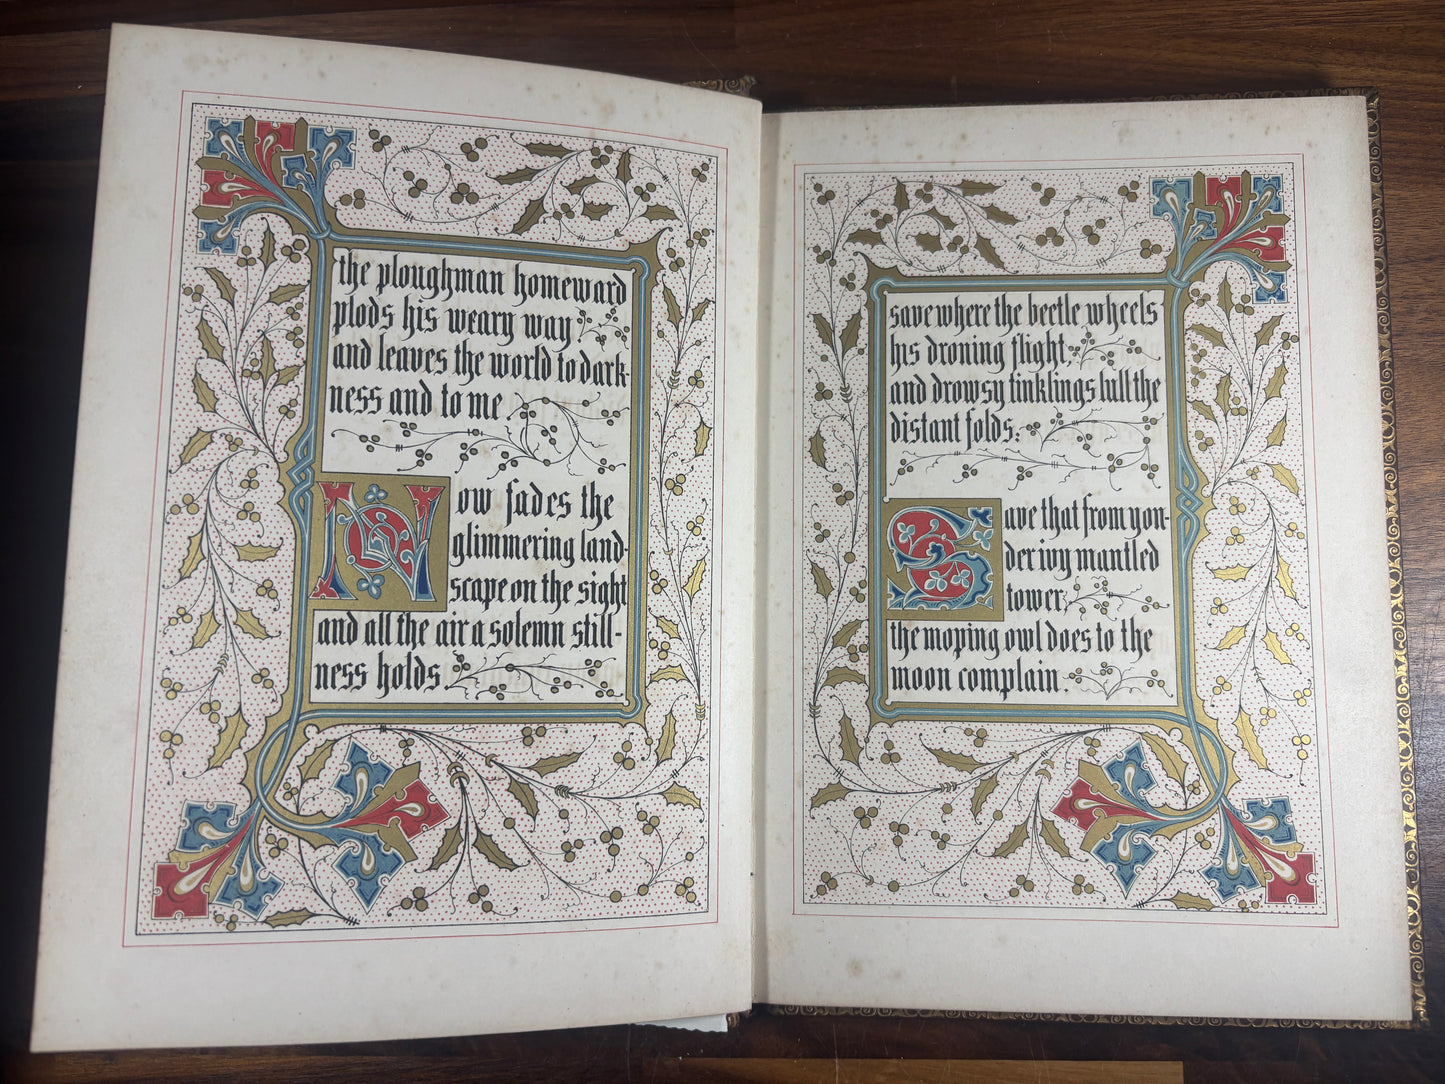 the ploughman homeward
plods his weary way
and leaves the world to dark-
ness and to me
Now fades the
glimmering land-
scape on the sight
and all the air a solemn still-
ness holds
save where the beetle wheels
his droning flight,
and drowsy tinklings lull the
distant folds:
Save that from yon-
der ivy mantled
tower,
the moping owl does to the
moon complain.